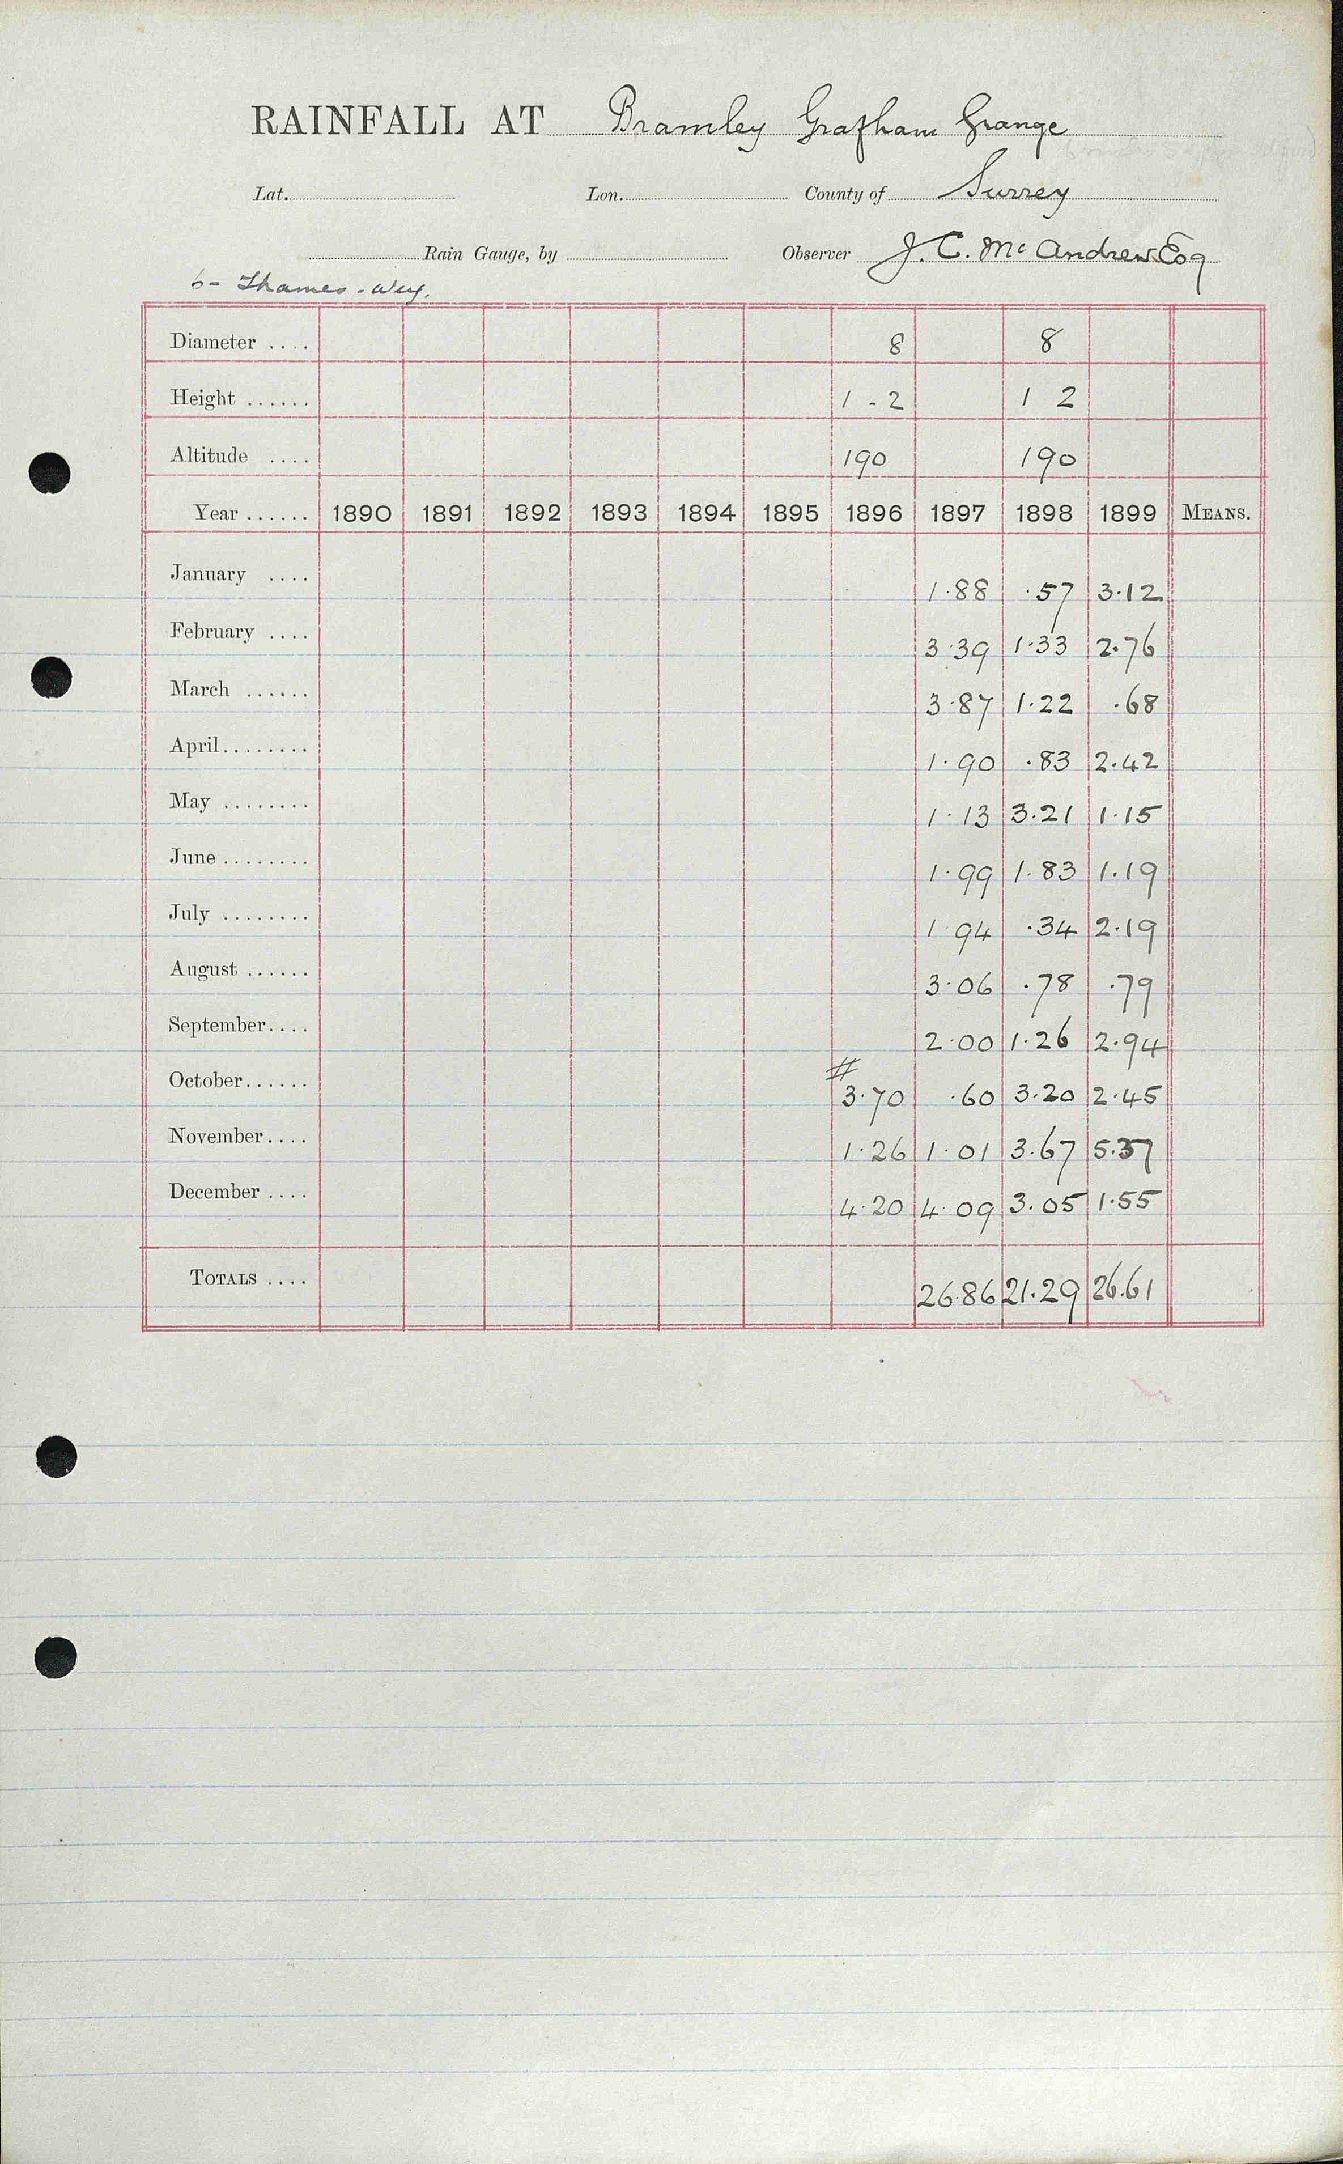 RAINFALL AT Bramley Grafham Grange
Lat. Lon. County of Surrey
Rain Gauge, by Observer J. C. Mc Andrew Esq
6- Thames - Wey.
Diameter .... 8 8
Height ...... 1 - 2 1 2
Altitude .... 190 190
Year ...... 1890 1891 1892 1893 1894 1895 1896 1897 1898 1899 MEANS.
January .... 1.88 .57 3.12
February .... 3.39 1.33 2.76
March ...... 3.87 1.22 .68
April........ 1.90 .83 2.42
May ........ 1.13 3.21 1.15
June ........ 1.99 1.83 1.19
July ........ 1 94 .34 2.19
August ...... 3.06 .78 .79
September.... 2.00 1.26 2.94
#
October...... 3.70 .60 3.20 2.45
November.... 1.26 1.01 3.67 5.37
December .... 4.20 4.09 3.05 1.55
TOTALS .... 26.86 21.29 26.61